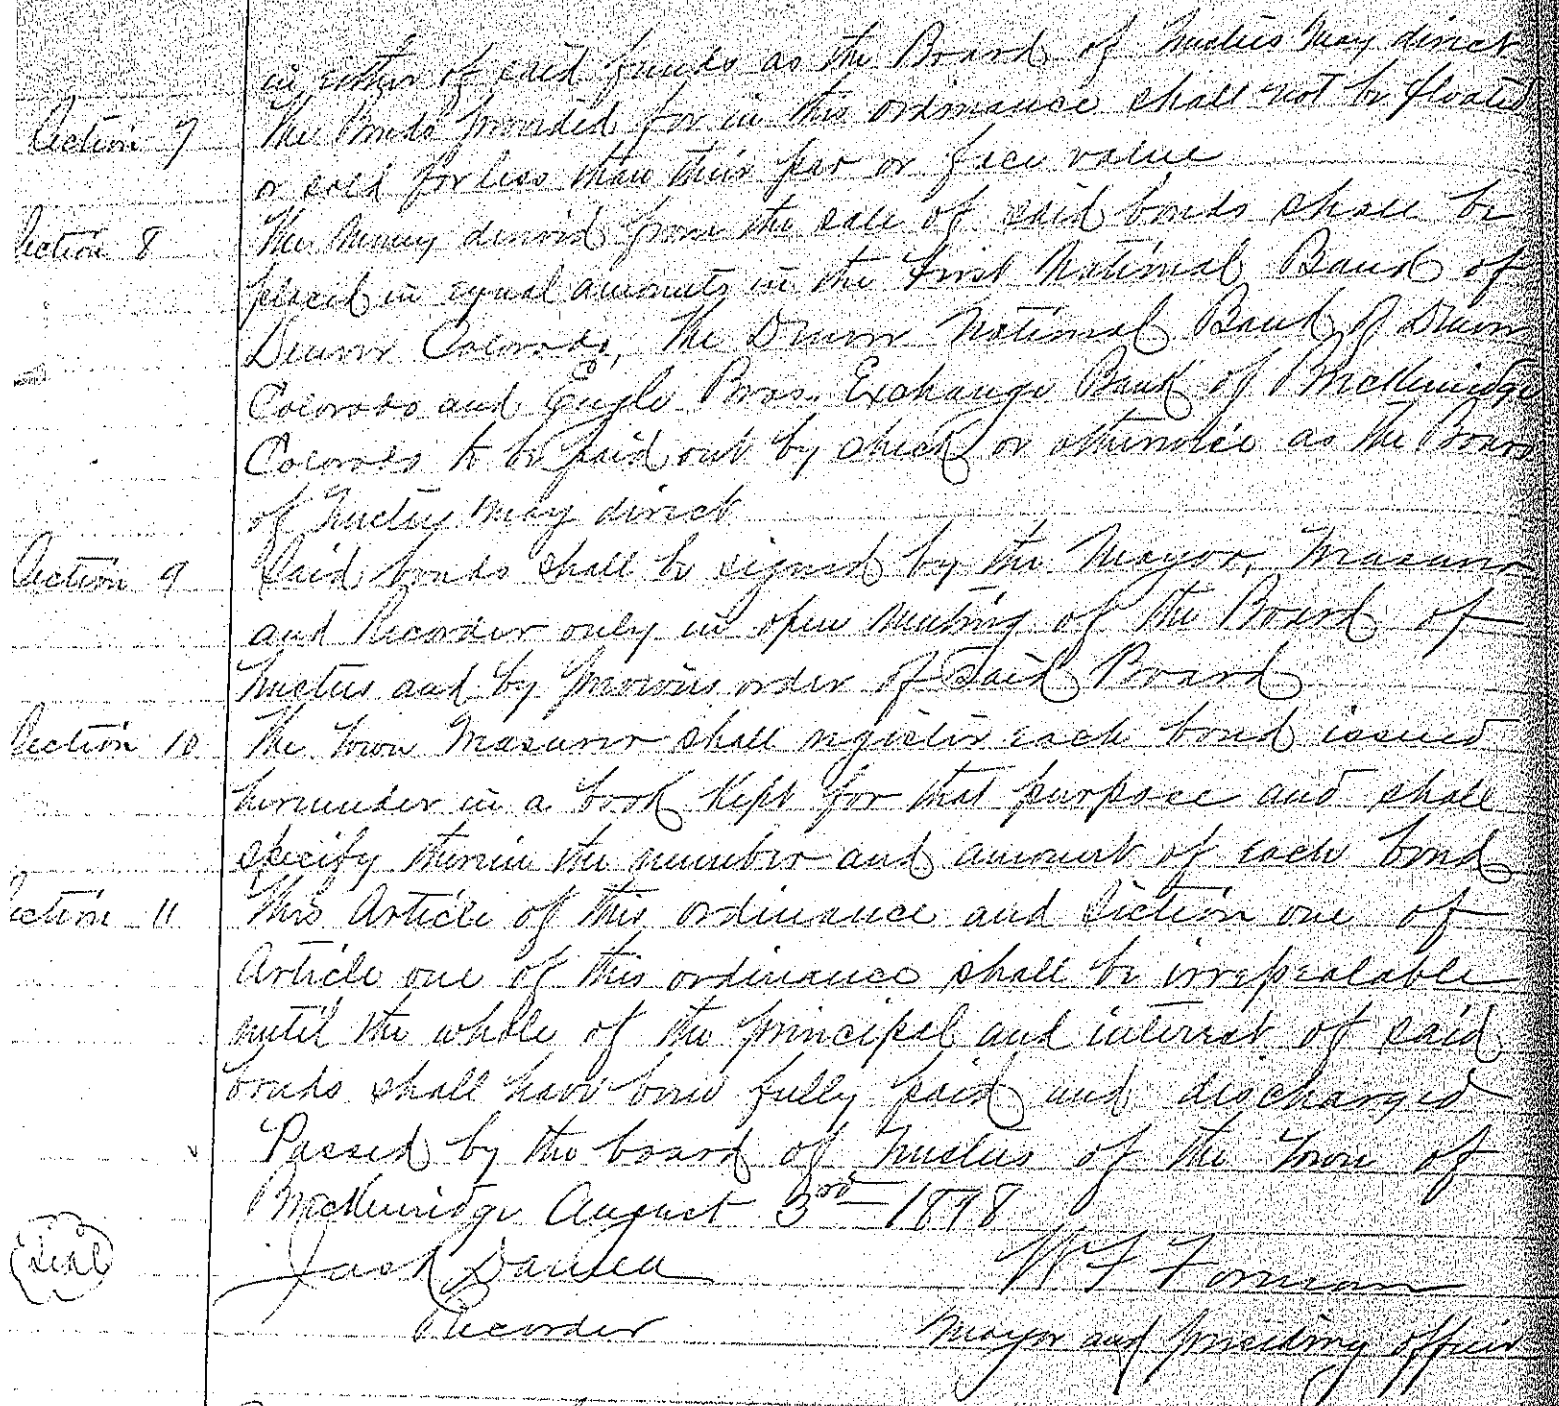 in either of said funds as the Board of Trustees may direct
Section 7 The Bonds provided for in this ordinance shall not be floated
or sold for less than their par or face value
Section 8 The money derived from the sale of said bonds shall be
placed in equal amounts in the First National Bank of
Denver Colorado, The Denver National Bank of Denver
Colorado and Engle Bros. Exchange Bank of Breckenridge
Colorado to be paid out by check or otherwise as the Board
of Trustees may direct
Section 9 Said bonds shall be signed by the Mayor, Treasurer
and Recorder only in open meeting of the Board of
Trustees and by previous order of said Board
Section 10 The Town Treasurer shall register each bond issued
hereunder in a book kept for that purpose and shall
specify therein the number and amount of each bond
Section 11 This Article of this ordinance and Section one of
Article one of this ordinance shall be irrepealable
until the whole of the principal and interest of said
bonds shall have been fully paid and discharged
Passed by the board of Trustees of the Town of
Breckenridge August 3rd 1898
Seal Jack W F Forman
Recorder Mayor and presiding officer